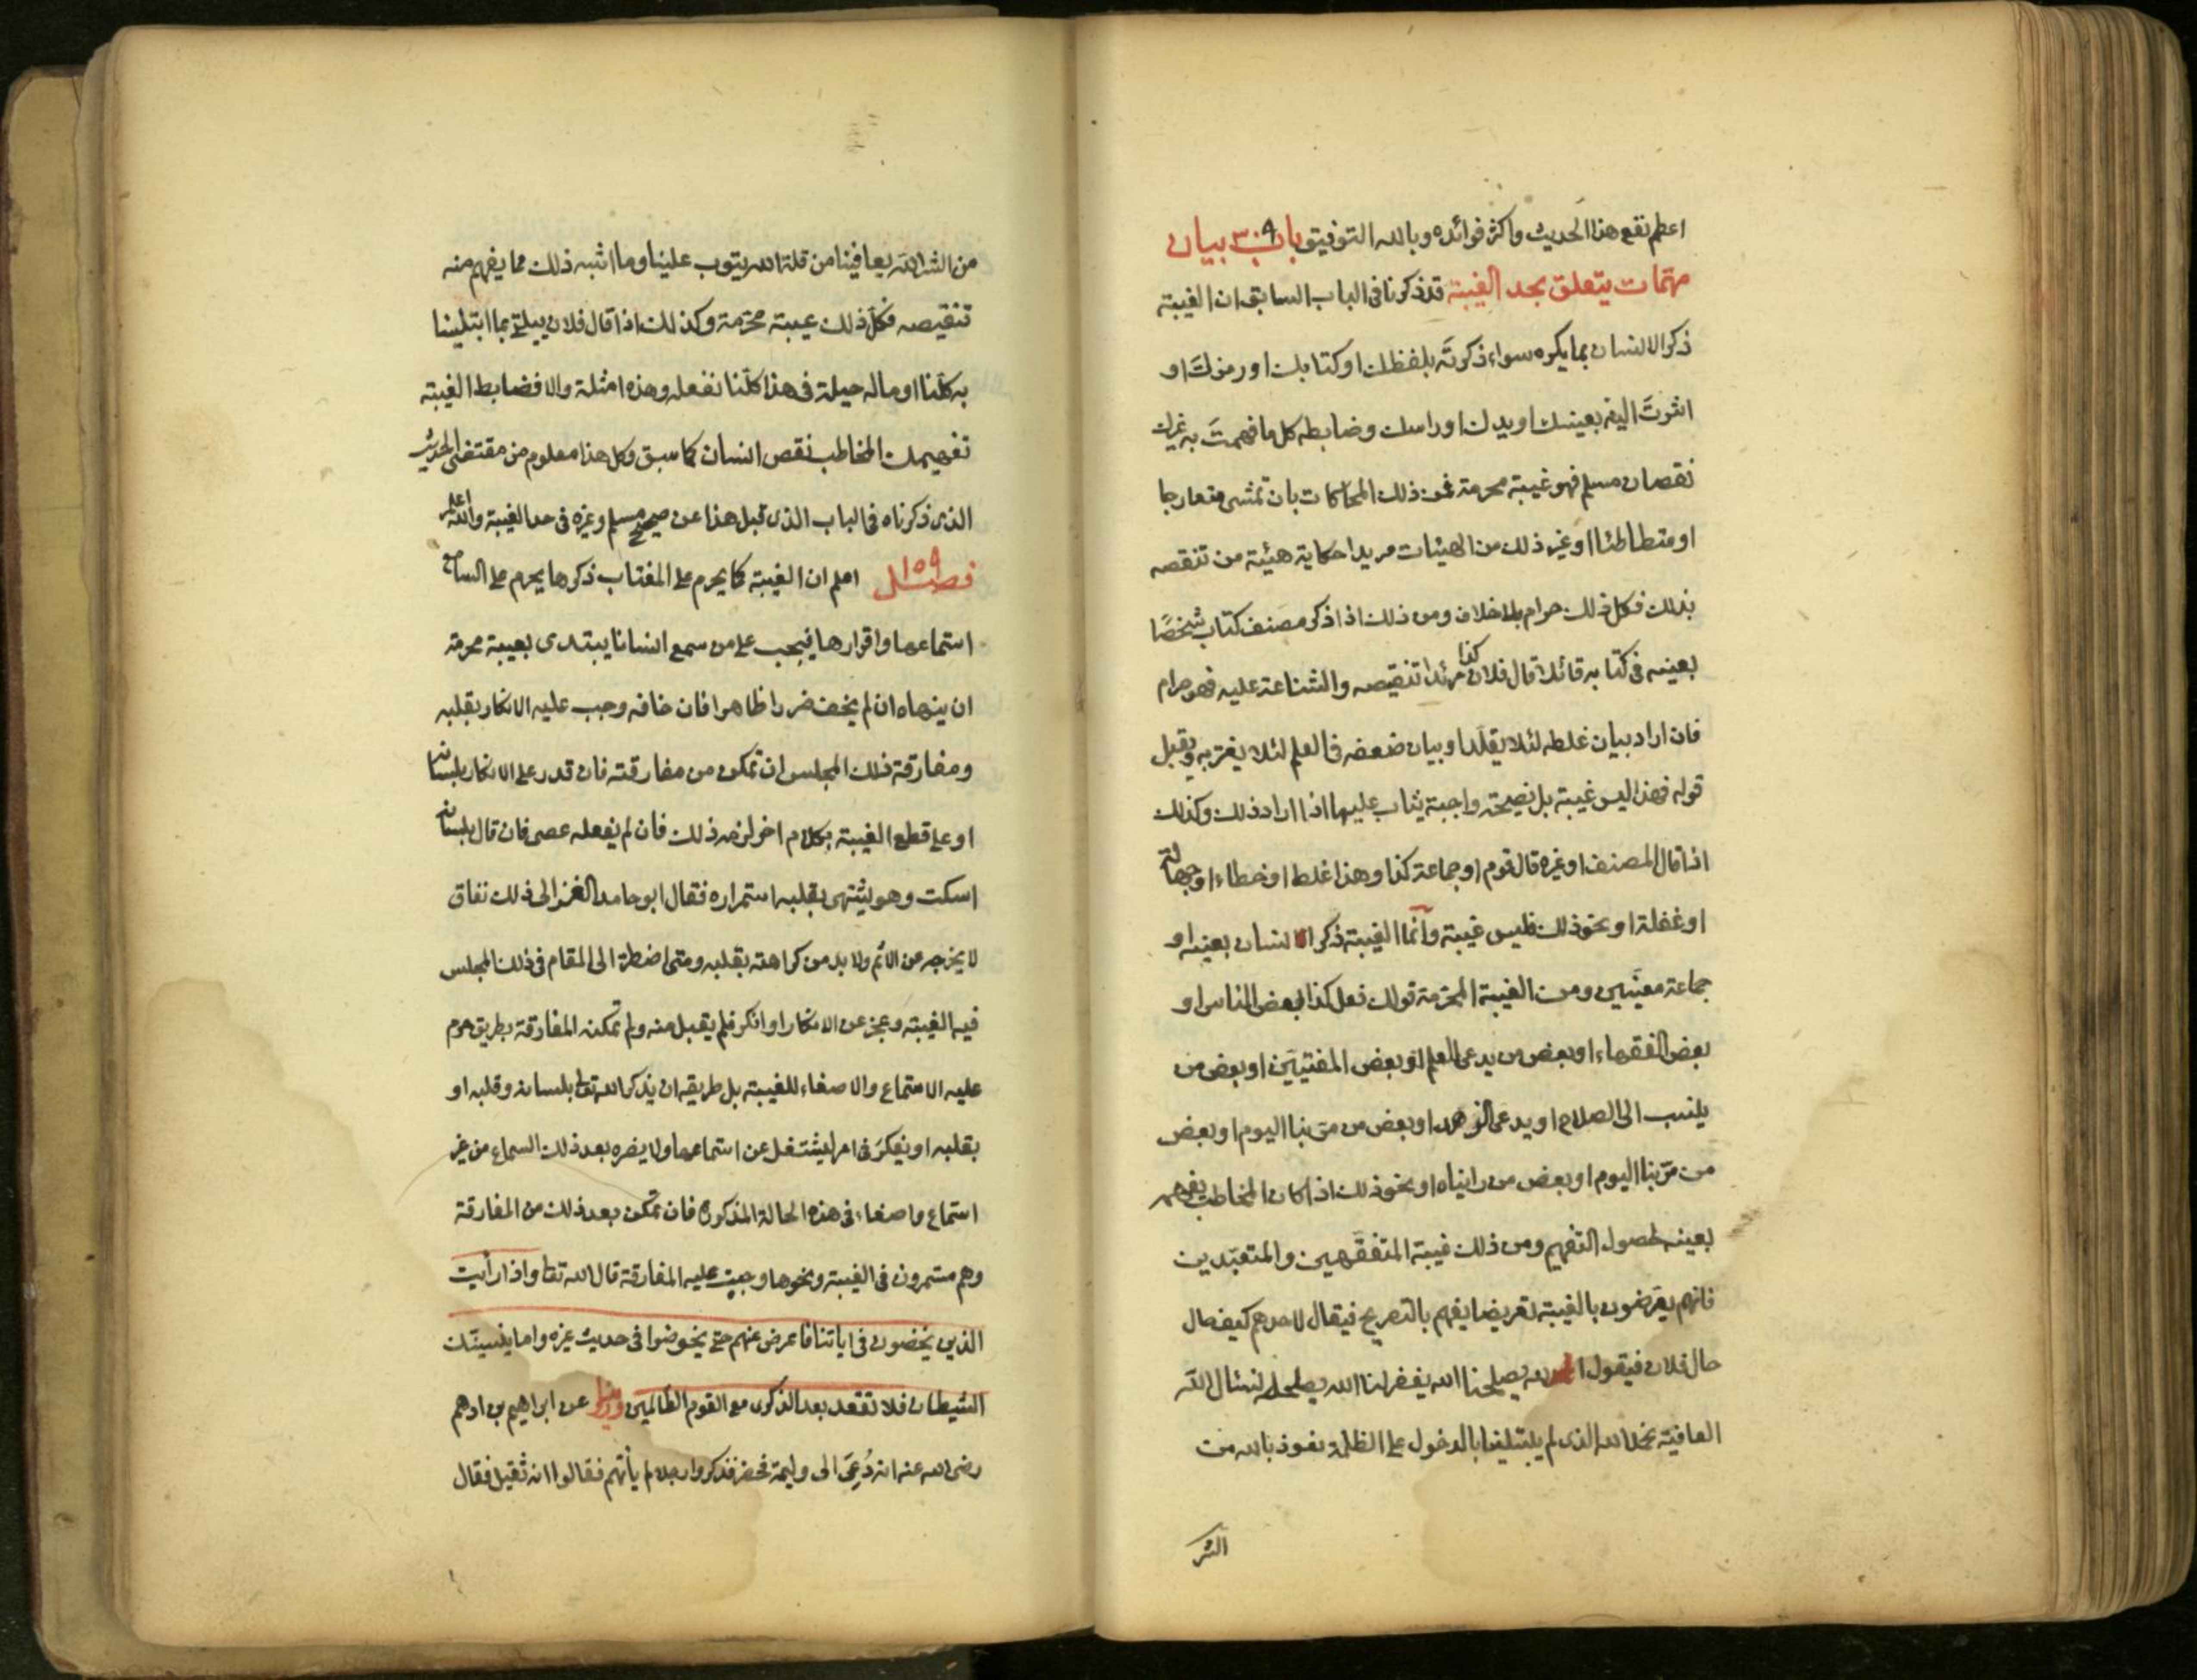 اعظم نفع هذا الحديث واكثر فوائده وبالله التوفيق باب ٣٠٩ بيان
مهمّات يتعلق بحد الغيبة قد ذكرنا فى الباب السابق ان الغيبة
ذكر الانسان بما يكره سواء ذكرتَه بلفظك او كتابك او رمزكَ او
اشرتَ اليه بعينك او يدك او راسك وضابطه كل ما فهمتَ به غيرك
نقصان مسلم فهو غيبة محرمة فمن ذلك المحاكات بان تمشى متعارجا
او متطاطئا او غير ذلك من الهيئات مريدا حكاية هيئة من تنقصه
بذلك فكل ذلك حرام بلا خلاف ومن ذلك اذا ذكر مصنف كتاب شخصًا
بعينه فى كتابه قائلا قال فلان كذا مريدا تنقيصه والشناعة عليه فهو حرام
فان اراد بيان غلطه لئلا يقلّد او بيان ضعفه فى العلم لئلا يغتر به ويقبل
قوله فهذا ليس غيبة بل نصيحة واجبة يثاب عليها اذا اراد ذلك وكذلك
اذا قال المصنف او غيره قال قوم او جماعة كذا وهذا غلط او خطاء او جهالة
او غفلة او نحو ذلك فليس غيبة وانّما الغيبة ذكر الانسان بعينه او
جماعة معيّنين ومن الغيبة المحرّمة قولك فعل كذا بعض الناس او
بعض الفقهاء او بعض من يدعى العلم او بعض المفتيين او بعض من
ينسب الى الصلاح او يدعى الزهد او بعض من مرّ بنا اليوم او بعض
من مرّ بنا اليوم او بعض من رايناه او نحو ذلك اذا كان المخاطب يفهمه
بعينه لحصول التفهيم ومن ذلك غيبة المتفقّهين والمتعبّدين
فانهم يعرّضون بالغيبة تعريضا يفهم بالتصريح فيقال لاحدهم كيف حال
حال فلان فيقول الله يصلحنا الله يغفر لنا الله يصلحه لنسئال الله
العافية نحمد الله الذى لم يبتلينا بالدخول على الظلمة نعوذ بالله من
الشر
من الشر الله يعافينا من قلة الله يتوب علينا وما اشبه ذلك مما يفهم منه
تنقيصه فكلّ ذلك غيبة محرّمة وكذلك اذا قال فلان يبتلى بما ابتلينا
به كلّنا او ما له حيلة فى هذا كلّنا نفعله وهذه امثلة والا فضابط الغيبة
تفهيمك المخاطب نقص انسان كما سبق وكل هذا معلوم من مقتضى الحديث
الذى ذكرناه فى الباب الذى قبل هذا عن صحيح مسلم وغيره فى حد الغيبة والله اعلم
فصل ١٥٩ اعلم ان الغيبة كما يحرم على المغتاب ذكرها يحرم على السامع
استماعها واقرارها فيجب على من سمع انسانا يبتدى بغيبة محرمة
ان ينهاه ان لم يخف ضررا ظاهرا فان خافه وجب عليه الانكار بقلبه
ومفارقة ذلك المجلس ان تمكن من مفارقته فان قدر على الانكار بلسانه
او على قطع الغيبة بكلام اخر لزمه ذلك فان لم يفعله عصى فان قال بلسانه
اسكت وهو يشتهى بقلبه استمراره فقال ابو حامد الغزالى ذلك نفاق
لا يخرجه عن الاثم ولا بد من كراهته بقلبه ومتى اضطرّ الى المقام فى ذلك المجلس
فيه الغيبة وعجز عن الانكار او انكر فلم يقبل منه ولم تمكنه المفارقة بطريق حرم
عليه الاستماع والاصغاء للغيبة بل طريقه ان يذكر الله تعالى بلسانه وقلبه او
بقلبه او يفكرَ فى امر ليشتغل عن استماعها ولا يضره بعد ذلك السماع من غير
استماع واصغاء فى هذه الحالة المذكورة فان تمكن بعد ذلك من المفارقة
وهم مستمرون فى الغيبة ونحوها وجبت عليه المفارقة قال الله تعالى واذا رأيت
الذين يخضون فى اياتنا فاعرض عنهم حتى يخوضوا فى حديث غيره واما ينسينّك
الشيطان فلا تقعد بعد الذكرى مع القوم الظالمين وروينا عن ابراهيم بن ادهم
رضى الله عنه انه دُعِىَ الى وليمة فحضر فذكروا رجلا لم يأتهم فقالوا انه ثقيل فقال